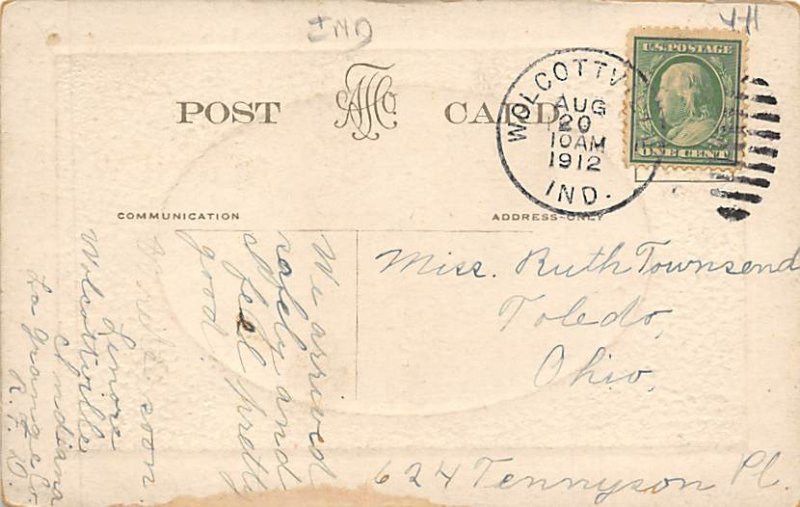 IND
4H
POST CARD
U.S. POSTAGE
ONE CENT
WOLCOTTV
AUG
20
10 AM
1912
IND.
COMMUNICATION
ADDRESS ONLY
We arrived
safely and
feel pretty
good.
Write soon.
Lenore
Wolcottville
Indiana
La Grange Co.
R. F. D.
Miss. Ruth Townsend
Toledo,
Ohio,
624 Tennyson Pl.